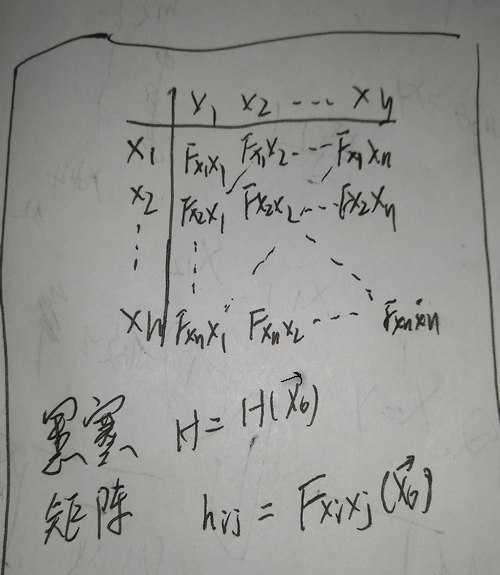 x₁ x₂ ---- xn
x₁ Fx₁x₁ Fx₁x₂ ---- Fx₁xn
x₂ Fx₂x₁ Fx₂x₂ ---- Fx₂xn
xn Fxnx₁ Fxnx₂ ---- Fxnxn
黑塞 H = H(x⃗₀)
矩阵 hij = Fxixj(x⃗₀)